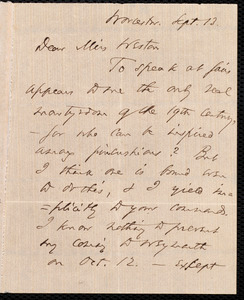 Worcester. Sept. 13.
Dear Miss Weston
To speak at fairs
appears to me the only real
martyrdom of the 19th century,
- for who can be inspired
among pincushions? But
I think one is bound even
to do this, & I yield im-
plicitly to your commands.
I know nothing to prevent
my coming to Weymouth
on Oct. 12. - except